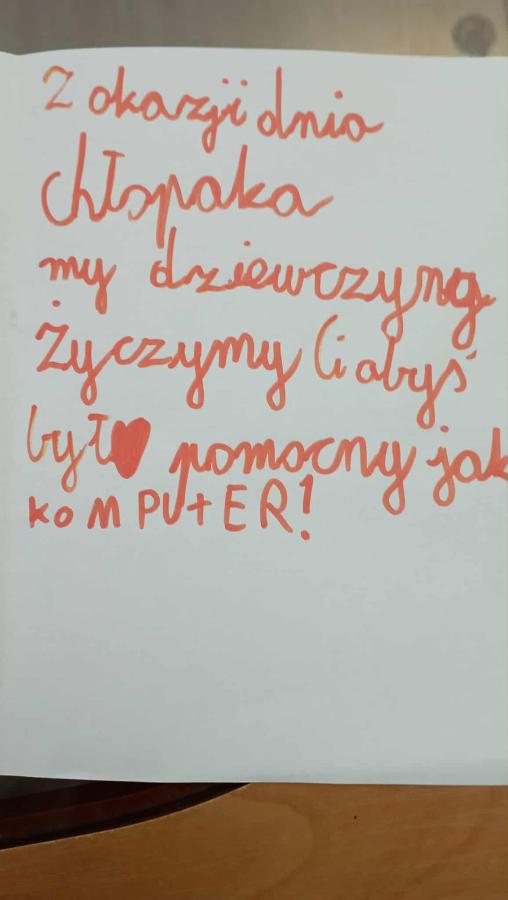 Z okazji dnia
chłopaka
my dziewczyny
Życzymy Ci abyś
był pomocny jak
koMPUtER!